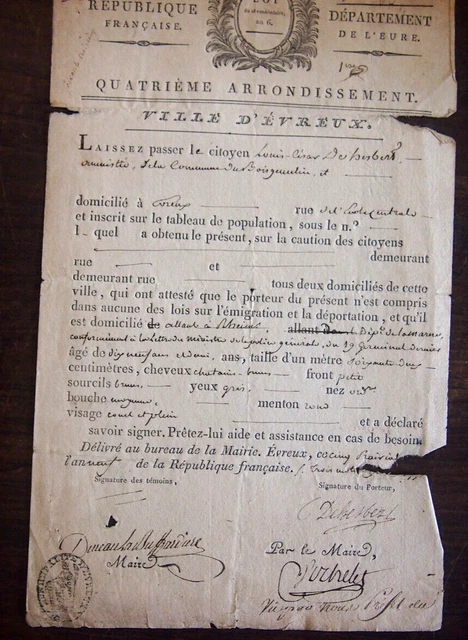 RÉPUBLIQUE
FRANÇAISE.
LOI
an 6.
DÉPARTEMENT
DE L'EURE.
QUATRIÈME ARRONDISSEMENT.
VILLE D'ÉVREUX.
LAISSEZ passer le citoyen Louis César
amnistié, de la Commune du et
domicilié à Evreux rue de l'école centrale
et inscrit sur le tableau de population, sous le n.º
l quel a obtenu le présent, sur la caution des citoyens
demeurant
rue et
demeurant rue tous deux domiciliés de cette
ville, qui ont attesté que le porteur du présent n'est compris
dans aucune des lois sur l'émigration et la déportation, et qu'il
est domicilié de allant à Rheims, allant dans Dépt. de la marne
conformément à la lettre du ministre de la police générale, du 19 Germinal dernier
âgé de dix neuf ans et demi, ans, taille d'un mètre soixante dix
centimètres, cheveux chatains bruns front petit
sourcils bruns yeux gris, nez
bouche moyenne, menton rond
visage court et plein et a déclaré
savoir signer. Prêtez-lui aide et assistance en cas de besoin
Délivré au bureau de la Mairie. Évreux, ce cinq
l'an neuf de la République française.
Signature des témoins, Signature du Porteur,
Par le Maire,
Maire